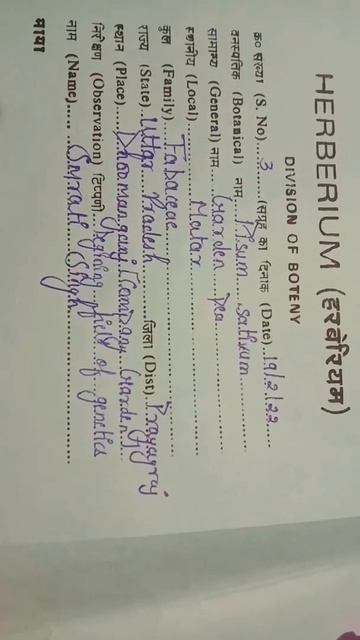 HERBERIUM (हरबेरियम)
DIVISION OF BOTENY
क्र० संख्या (S. No)....3......(संग्रह का दिनांक (Date)..19/2/22......
वनस्पतिक (Botanical) नाम....Pisum sativum......
सामान्य (General) नाम....Garden pea......
स्थानीय (Local)....Matar......
कुल (Family)....Fabaceae......
राज्य (State)..Uttar Pradesh......जिला (Dist)..Prayagraj
स्थान (Place)....Company Garden......
निरीक्षण (Observation) टिप्पणी....field of genetics
नाम (Name).....Smrati Singh......
माया